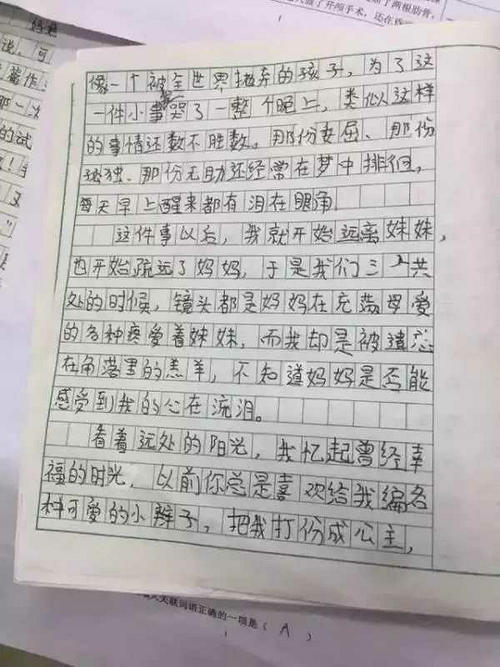 了开颅手术，还在
两根肋骨，
像一个被全世界抛弃的孩子，为了这
一件小事哭了一整个晚上，类似这样
的事情还数不胜数。那份委屈、那份
孤独、那份无助还经常在梦中排徊，
每天早上醒来都有泪在眼角。
这件事以后，我就开始远离妹妹，
也开始疏远了妈妈，于是我们三人共
处的时候，镜头都是妈妈在充满母爱
的各种疼爱着妹妹，而我却是被遗忘
在角落里的羔羊，不知道妈妈是否能
感受到我的心在流泪。
看着远处的阳光，我忆起曾经幸
福的时光，以前你总是喜欢给我编各
种可爱的小辫子，把我打份成公主，
关联词语正确的一项是（ A ）